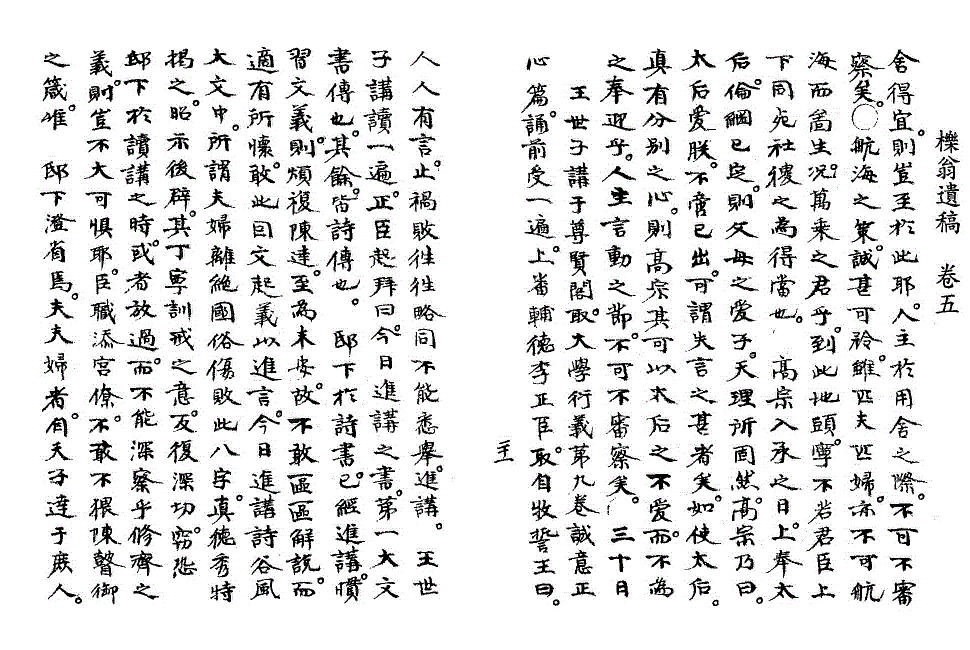 櫟翁遺稿 卷五
舍得宜則豈至於此耶人主於用舍之際不可不審
察矣○航海之策誠甚可矜雖匹夫匹婦亦不可航
海而苟生況萬乘之君乎到此地頭寧不若君臣上
下同死社稷之爲得當也 高宗入承之日上奉太
后倫綱已定則父母之愛子天理所固然高宗乃曰
太后愛朕不啻已出可謂失言之甚者矣如使太后
眞有分別之心則高宗其可以太后之不愛而不爲
之奉迎乎人主言動之節不可不審察矣 三十日
王世子講于尊賢閣取大學衍義第九卷誠意正
心篇誦前受一遍上番輔德李正臣取自牧誓王曰
主
人人有言止禍敗往往略同不能悉舉進講 王世
子講讀一遍正臣起拜曰今日進講之書第一大文
書傳也其餘皆詩傳也 邸下於詩書已經進講慣
習文義則煩復陳達至爲未安故不敢區區解說而
適有所懷敢此因文起義以進言今日進講詩谷風
大文中所謂夫婦離絶國俗傷敗此八字眞德秀特
揭之昭示後辟其丁寧訓戒之意反復深切竊恐
邸下於讀講之時或者放過而不能深察乎修齊之
義則豈不大可惧耶臣職添宮僚不敢不猥陳瞽御
之箴惟 邸下澄省焉夫夫婦者自天子達于庶人